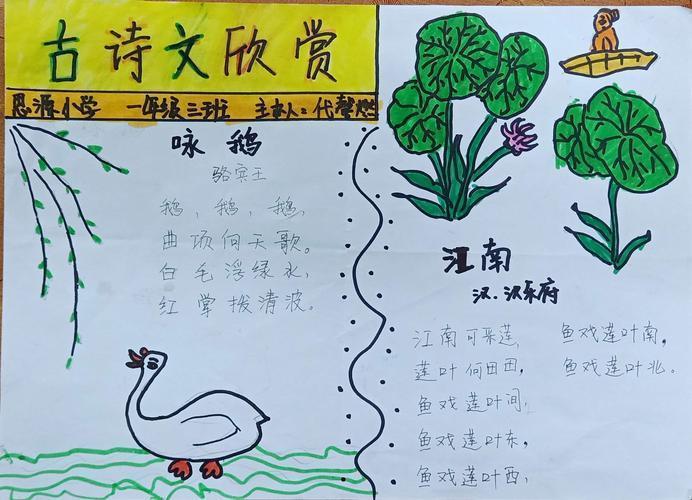 古诗文欣赏
恩源小学 一年级三班 主办人:代馨燃
咏鹅
骆宾王
鹅,鹅,鹅,
曲项向天歌。
白毛浮绿水,
红掌拨清波。
江南
汉·汉乐府
江南可采莲,
莲叶何田田,
鱼戏莲叶间,
鱼戏莲叶东,
鱼戏莲叶西,
鱼戏莲叶南,
鱼戏莲叶北。